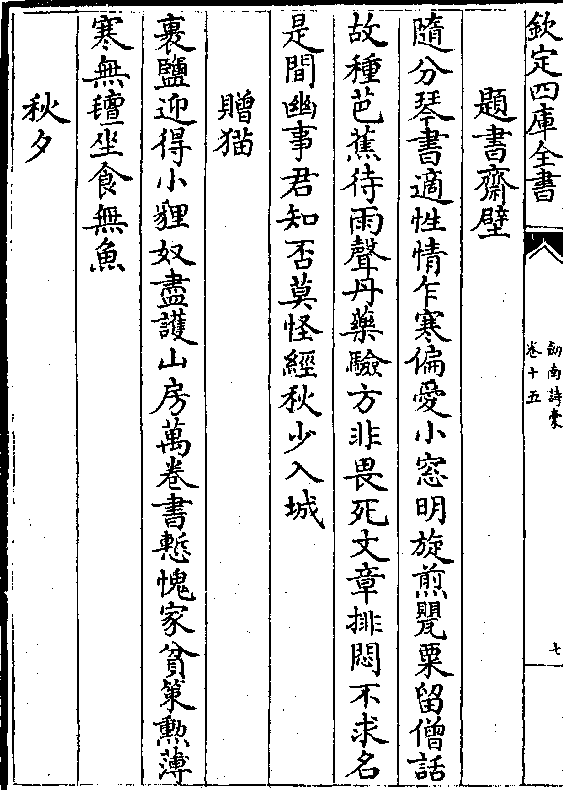 欽定四庫全書
劔南詩稾
卷十五
七
題書齋壁
隨分琴書適性情乍寒偏愛小窓明旋煎甖粟留僧話
故種芭蕉待雨聲丹藥驗方非畏死文章排悶不求名
是間幽事君知否莫怪經秋少入城
贈猫
裹鹽迎得小貍奴盡護山房萬卷書慙愧家貧策勲薄
寒無氊坐食無魚
秋夕